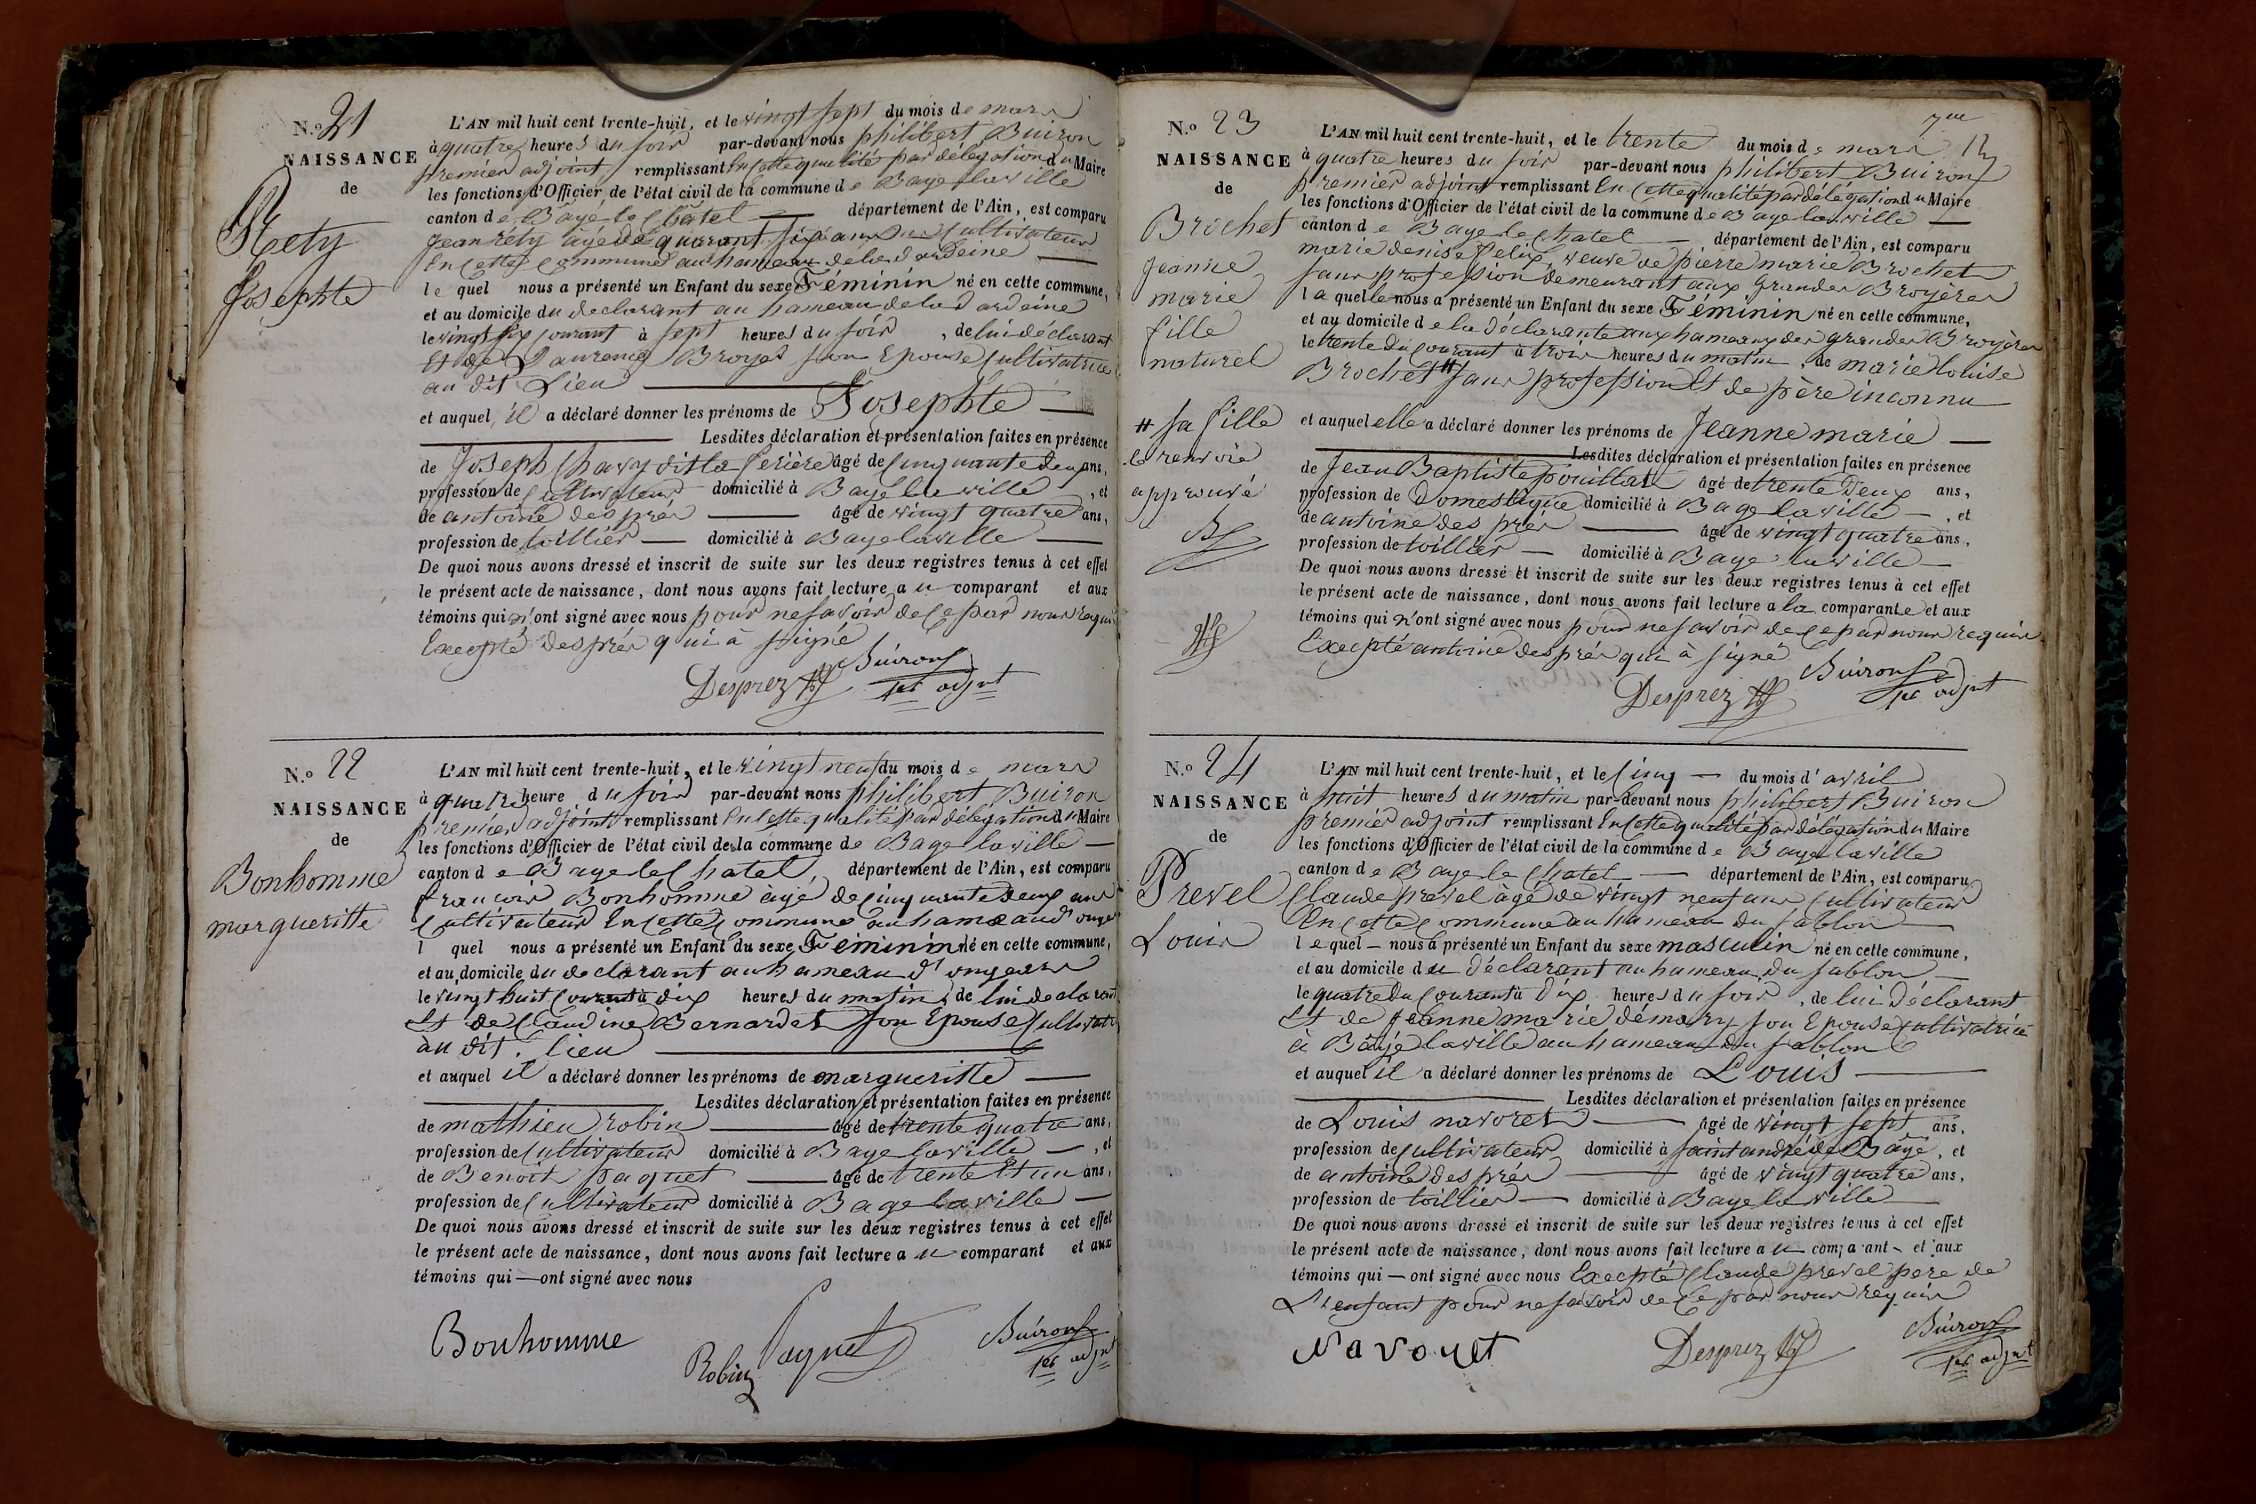 N.o 21
NAISSANCE
de
Réty
Josephte
L'AN mil huit cent trente-huit, et le vingt sept du mois de mars
à quatre heures du soir par-devant nous philibert Buiron
premier adjoint, remplissant En cette qualité par délégation du Maire
les fonctions d'Officier de l'état civil de la commune de Bagé la ville
canton de Bagé le Chatel département de l'Ain, est comparu
Jean réty âgé de quarant six ans Cultivateur
En cette Commune au hameau de la dardeine
le quel nous a présenté un Enfant du sexe Féminin né en cette commune,
et au domicile du declarant au hameau de la dardeine
le vingt six courant à sept heures du soir, de lui déclarant
Et de Laurence Broyer son Epouse Cultivatrice
au dit Lieu
et auquel il a déclaré donner les prénoms de Josephte
Lesdites déclaration et présentation faites en présence
de Joseph Chavy dit la ferière âgé de Cinquante deux ans,
profession de Cultivateur domicilié à Bagé la ville, et
de antoine després âgé de vingt quatre ans,
profession de toillier domicilié à Bagé la ville
De quoi nous avons dressé et inscrit de suite sur les deux registres tenus à cet effet
le présent acte de naissance, dont nous avons fait lecture au comparant et aux
témoins qui n'ont signé avec nous pour ne savoir de ce par nous requis
Excepté després qui à signé
Desprez Buiron
1er adjnt
N.o 22
NAISSANCE
de
Bonhomme
margueritte
L'AN mil huit cent trente-huit, et le vingt neuf du mois de mars
à quatre heure du soir par-devant nous philibert Buiron
premier adjoint remplissant En cette qualité par délégation du Maire
les fonctions d'Officier de l'état civil de la commune de Bagé la ville
canton de Bagé le Chatel, département de l'Ain, est comparu
francois Bonhomme âgé de cinquante deux ans
Cultivateur En cette Commune au hameau d'onge
l quel nous a présenté un Enfant du sexe Féminin né en cette commune,
et au domicile du declarant au hameau d'
le vingt huit Courant à dix heures du matin, de lui declarant
Et de Claudine Bernardet son Epouse Cultivatr
au dit lieu
et auquel il a déclaré donner les prénoms de margueritte
Lesdites déclaration et présentation faites en présence
de mathieu robin âgé de trente quatre ans,
profession de Cultivateur domicilié à Bagé la ville, et
de Benoit paquet âgé de trente Et un ans,
profession de Cultivateur domicilié à Bagé la ville
De quoi nous avons dressé et inscrit de suite sur les deux registres tenus à cet effet
le présent acte de naissance, dont nous avons fait lecture au comparant et aux
témoins qui ont signé avec nous
Bonhomme Robin Paquet Buiron
1er adjnt
7me
N.o 23
NAISSANCE
de
Brochet
Jeanne
marie
fille
naturel
# sa fille
le renvoie
approuvé
B
L'AN mil huit cent trente-huit, et le trente du mois de mars
à quatre heures du soir par-devant nous philibert Buiron
premier adjoint remplissant En cette qualité par délégation du Maire
les fonctions d'Officier de l'état civil de la commune de Bagé la ville
canton de Bagé le Chatel département de l'Ain, est comparu
marie denise felix, veuve de pierre marie Brochet
sans profession demeurant aux grandes Broyères
la quelle nous a présenté un Enfant du sexe Féminin né en cette commune,
et au domicile de la déclarante aux hameaux des grandes Broyères
le trente du courant à trois heures du matin, de marie louise
Brochet # sans profession Et de père inconnu
et auquel elle a déclaré donner les prénoms de Jeanne marie
Lesdites déclaration et présentation faites en présence
de Jean Baptiste pouillat âgé de trente deux ans,
profession de Domestique domicilié à Bagé la ville, et
de antoine des prés âgé de vingt quatre ans,
profession de toillier domicilié à Bagé la ville
De quoi nous avons dressé et inscrit de suite sur les deux registres tenus à cet effet
le présent acte de naissance, dont nous avons fait lecture a la comparante et aux
témoins qui n'ont signé avec nous pour ne savoir de ce par nous requis
Excepté antoine després qui à signé
Desprez Buiron
1er adjnt
N.o 24
NAISSANCE
de
Prevel
Louis
L'AN mil huit cent trente-huit, et le Cinq du mois d'avril
à huit heures du matin par-devant nous philibert Buiron
premier adjoint remplissant En cette qualité par délégation du Maire
les fonctions d'Officier de l'état civil de la commune de Bagé la ville
canton de Bagé le Chatel département de l'Ain, est comparu
Claude prevel âgé de vingt neuf ans Cultivateur
En cette Commune au hameau du sablon
le quel nous a présenté un Enfant du sexe masculin né en cette commune,
et au domicile du déclarant au hameau du sablon
le quatre du Courant à dix heures du soir, de lui déclarant
Et de Jeanne marie démary son Epouse cultivatrice
à Bagé la ville au hameau du sablon
et auquel il a déclaré donner les prénoms de Louis
Lesdites déclaration et présentation faites en présence
de Louis navoret âgé de vingt sept ans,
profession de Cultivateur domicilié à saint andré de Bagé, et
de antoine després âgé de vingt quatre ans,
profession de toillier domicilié à Bagé la ville
De quoi nous avons dressé et inscrit de suite sur les deux registres tenus à cet effet
le présent acte de naissance, dont nous avons fait lecture au comparant et aux
témoins qui ont signé avec nous Excepté Claude prevel pere de
L'enfant pour ne savoir de ce par nous requis
Navoret Desprez Buiron
1er adjnt